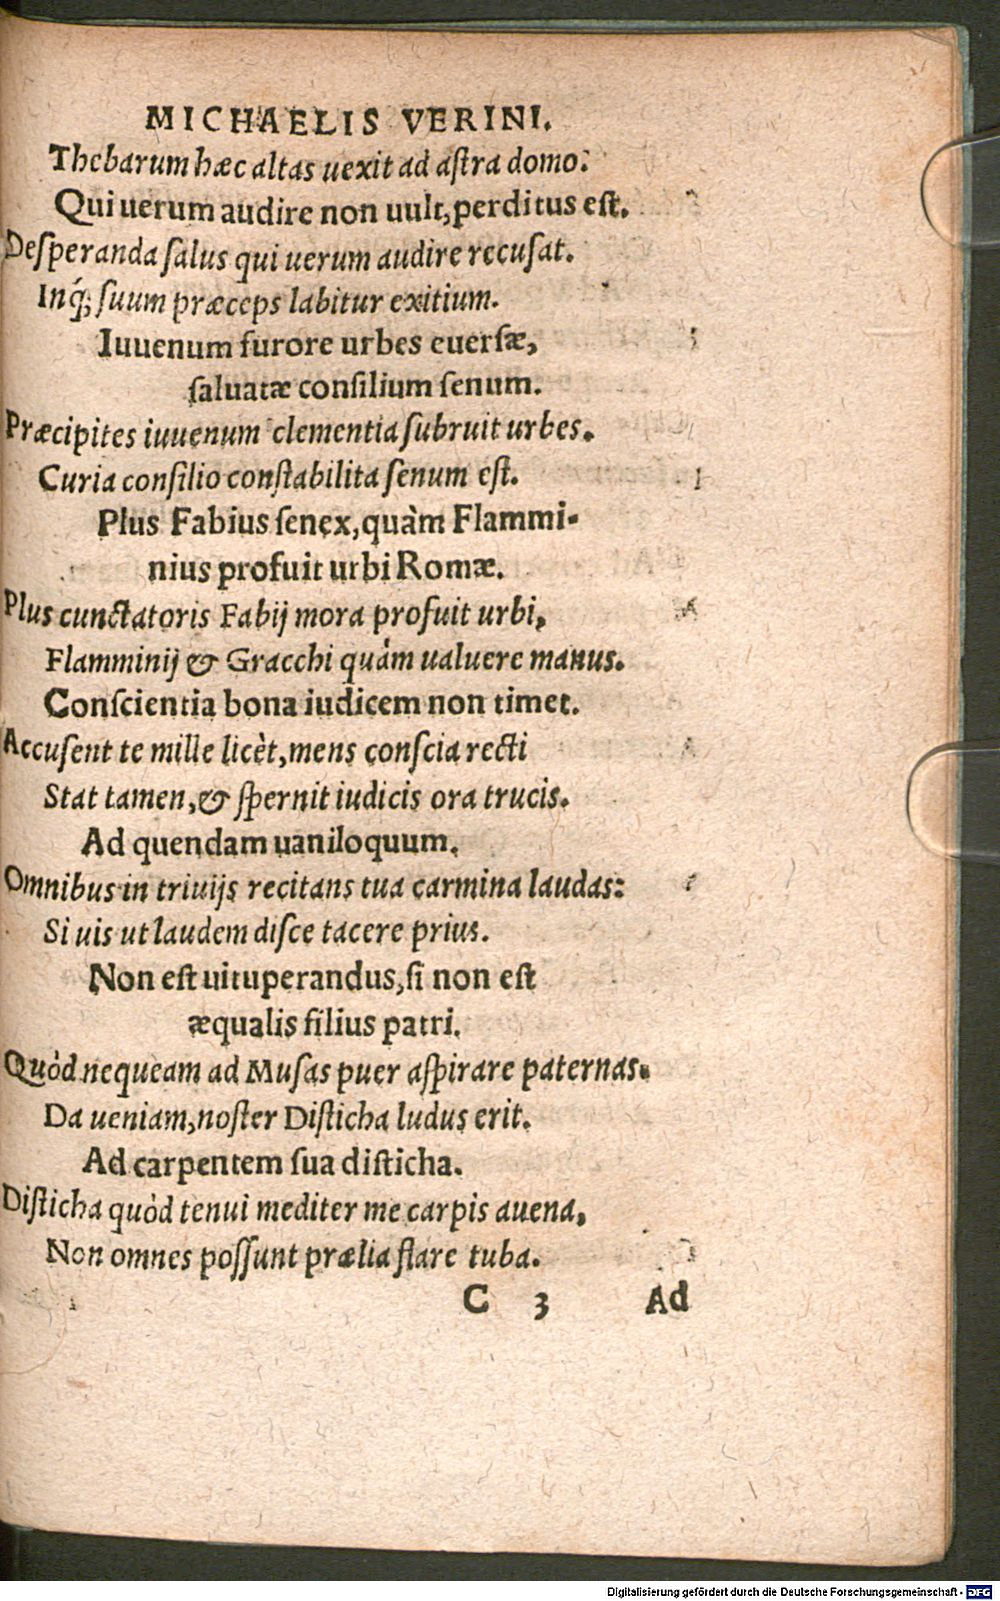 MICHAELIS VERINI.
Thebarum hæc altas uexit ad aſtra domo.
Qui uerum audire non uult, perditus eſt.
Deſperanda ſalus qui uerum audire recuſat.
Inq́; ſuum præceps labitur exitium.
Iuuenum furore urbes euerſæ,
ſaluatæ conſilium ſenum.
Præcipites iuuenum clementia ſubruit urbes.
Curia conſilio conſtabilita ſenum eſt.
Plus Fabius ſenex, quàm Flammi-
nius profuit urbi Romæ.
Plus cunctatoris Fabij mora profuit urbi,
Flamminij & Gracchi quàm ualuere manus.
Conſcientia bona iudicem non timet.
Accuſent te mille licèt, mens conſcia recti
Stat tamen, & ſpernit iudicis ora trucis.
Ad quendam uaniloquum.
Omnibus in triuijs recitans tua carmina laudas:
Si uis ut laudem diſce tacere prius.
Non eſt uituperandus, ſi non eſt
æqualis filius patri.
Quòd nequeam ad Muſas puer aſpirare paternas.
Da ueniam, noſter Diſticha ludus erit.
Ad carpentem ſua diſticha.
Diſticha quòd tenui mediter me carpis auena,
Non omnes poſſunt prælia flare tuba.
C 3 Ad
Digitalisierung gefördert durch die Deutsche Forschungsgemeinschaft - DFG